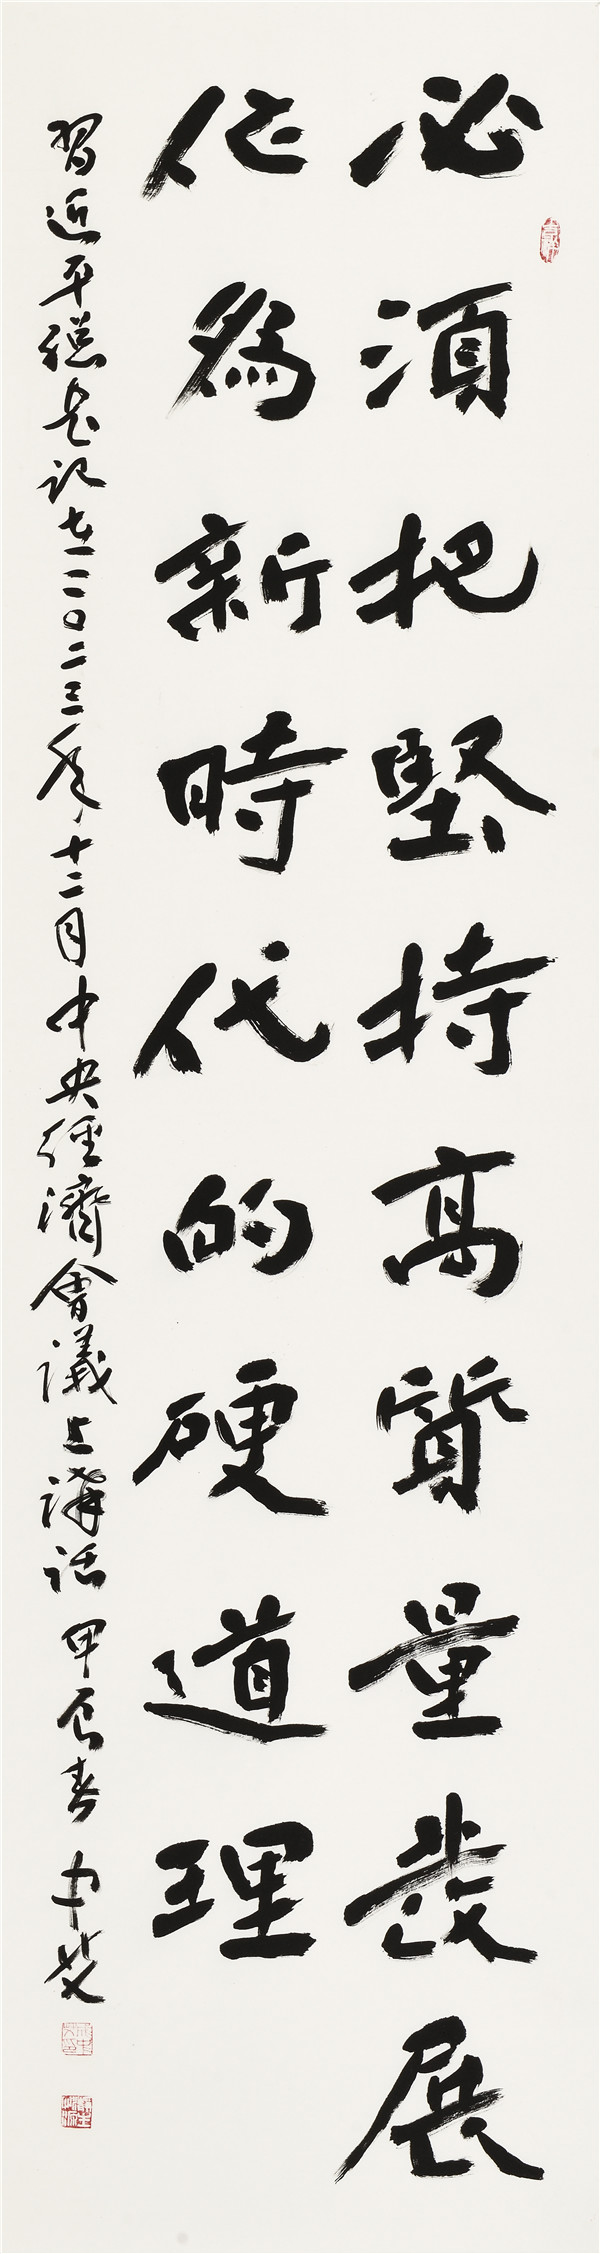 必須把堅持高質量發展
作爲新時代的硬道理
習近平總書記在二〇二三年十二月中央經濟會議上講話 甲辰春